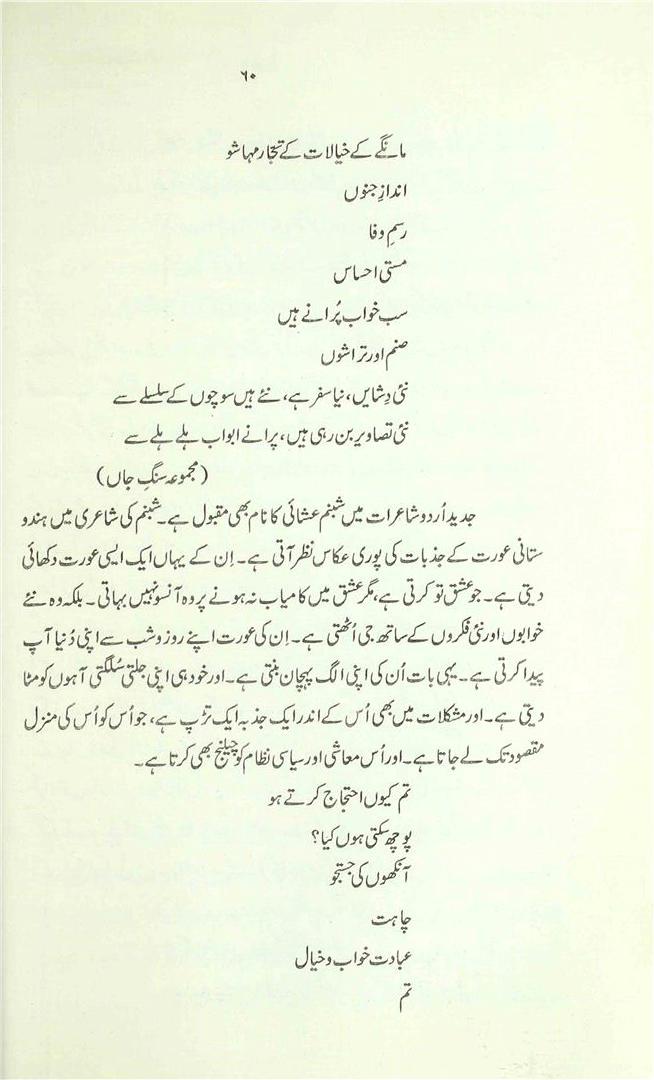 ۶۰
مانگے کے خیالات کے تجّار مہاشو
اندازِ جنوں
رسمِ وفا
مستی احساس
سب خواب پُرانے ہیں
صنم اور تراشوں
نئی دِشایں، نیا سفر ہے، نئے ہیں سوچوں کے سلسلے سے
نئی تصاویر بن رہی ہیں، پرانے ابواب ہلے ہلے سے
(مجموعہ سنگِ جاں)
جدید اُردو شاعرات میں شبنم عشائی کا نام بھی مقبول ہے۔ شبنم کی شاعری میں ہندو
ستانی عورت کے جذبات کی پوری عکاس نظر آتی ہے۔ اِن کے یہاں ایک ایسی عورت دکھائی
دیتی ہے۔ جو عشق تو کرتی ہے، مگر عشق میں کامیاب نہ ہونے پر وہ آنسو نہیں بہاتی۔ بلکہ وہ نئے
خوابوں اور نئی فکروں کے ساتھ جی اُٹھتی ہے۔ اِن کی عورت اپنے روز و شب سے اپنی دُنیا آپ
پیدا کرتی ہے۔ یہی بات اُن کی اپنی الگ پہچان بنتی ہے۔ اور خود ہی اپنی جلتی سُلگتی آہوں کو مٹا
دیتی ہے۔ اور مشکلات میں بھی اُس کے اندر ایک جذبہ ایک تڑپ ہے، جو اُس کو اُس کی منزل
مقصود تک لے جاتا ہے۔ اور اُس معاشی اور سیاسی نظام کو چیلنج بھی کرتا ہے۔
تم کیوں احتجاج کرتے ہو
پوچھ سکتی ہوں کیا؟
آنکھوں کی جستجو
چاہت
عبادت خواب و خیال
تم